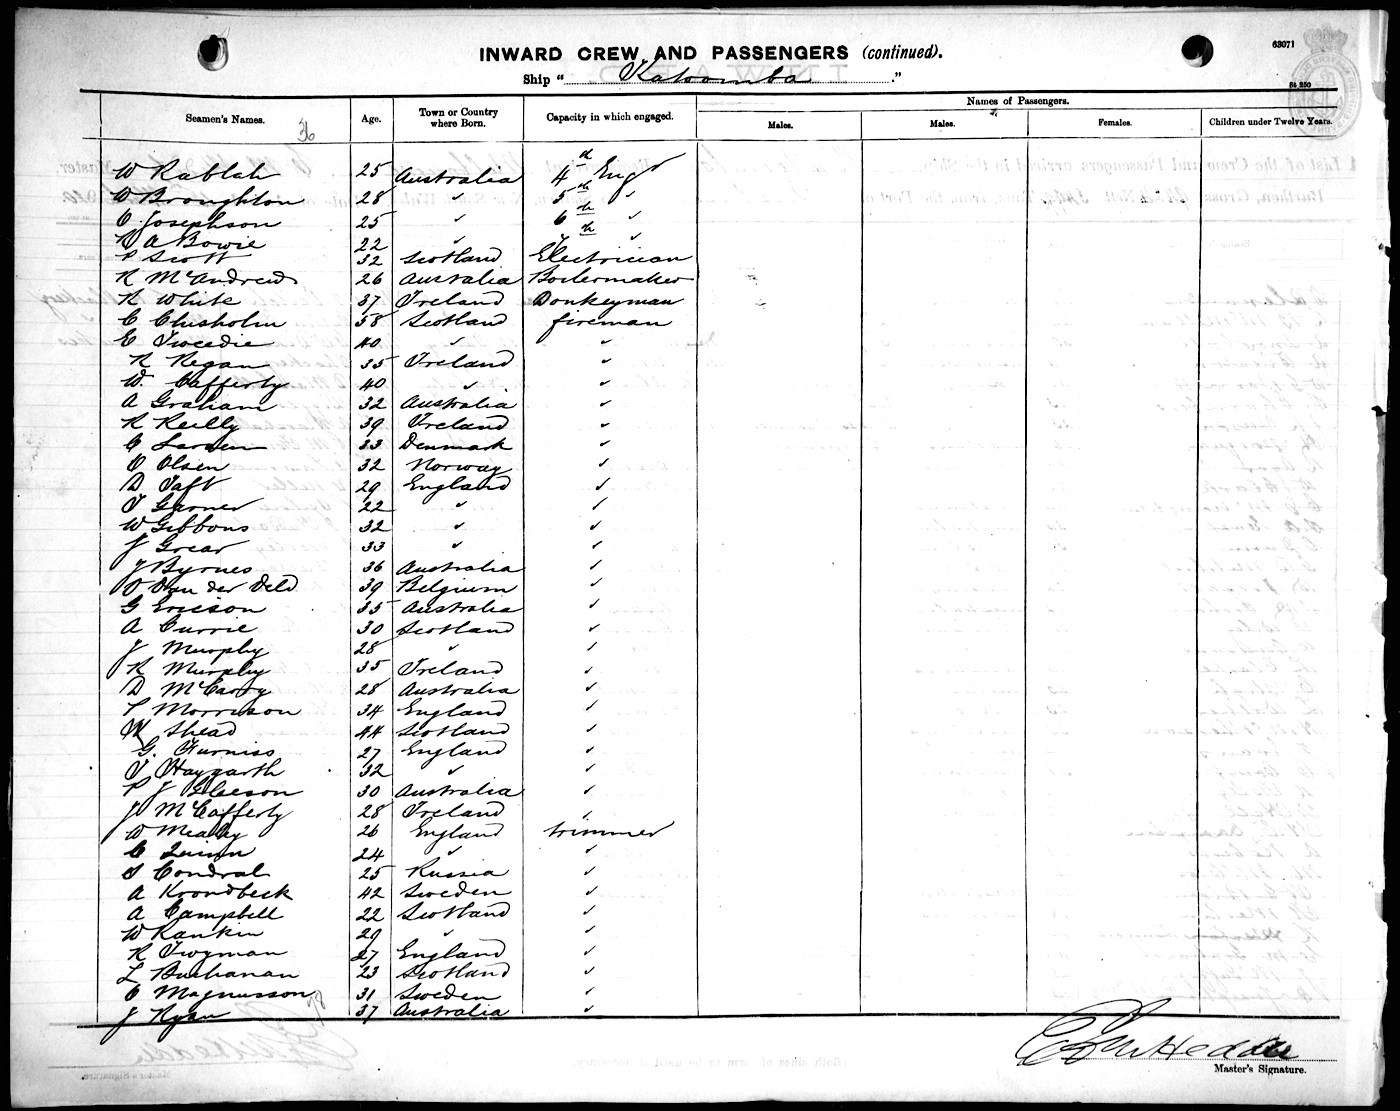 63071
INWARD CREW AND PASSENGERS (continued).
Ship " Katoomba "
St 250
Seamen's Names. Age. Town or Country where Born. Capacity in which engaged. Names of Passengers.
Males. Males. Females. Children under Twelve Years.
36
W Rablah 25 Australia 4th Engr
W Broughton 28 " 5th "
C Josephson 25 " 6th "
R A Bowie 22 " 7th "
P Scott 32 Scotland Electrician
R McAndrew 26 Australia Boilermaker
R White 37 Ireland Donkeyman
C Chisholm 58 Scotland fireman
E Tweedie 40 " "
R Regan 35 Ireland "
W. Cafferty 40 " "
A Graham 32 Australia "
R Reilly 39 Ireland "
C Larsen 33 Denmark "
O Olsen 32 Norway "
D Taft 29 England "
T Garner 22 " "
W Gibbons 32 " "
J Grear 33 " "
J Byrnes 36 Australia "
O Van der Veld 39 Belgium "
G Ericson 35 Australia "
A Currie 30 Scotland "
J Murphy 28 " "
R Murphy 35 Ireland "
D McCarry 28 Australia "
P Morrison 34 England "
W Shead 44 Scotland "
G. Furniss 27 England "
T Haygarth 32 " "
P J Gleeson 30 Australia "
J McCafferty 28 Ireland "
W Mealey 26 England trimmer
C Quinn 24 " "
S Condrat 25 Russia "
A Krondbeck 42 Sweden "
A Campbell 22 Scotland "
W Rankin 29 " "
R Twyman 27 England "
L Buchanan 23 Scotland "
C Magnusson 31 Sweden "
J Ryan 37 Australia "
78
Master's Signature.